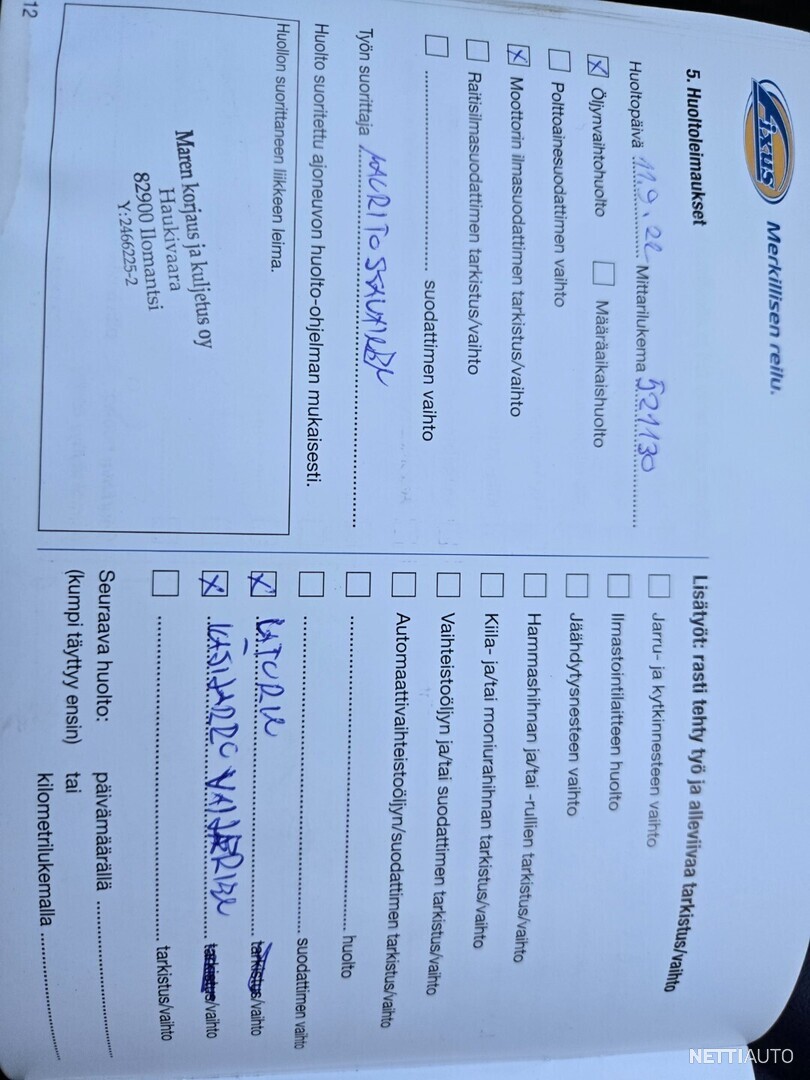 Fixus
Merkillisen reilu.
5. Huoltoleimaukset
Huoltopäivä 11.9.22 Mittarilukema 521130
Öljynvaihtohuolto Määräaikaishuolto
Polttoainesuodattimen vaihto
Moottorin ilmasuodattimen tarkistus/vaihto
Raitisilmasuodattimen tarkistus/vaihto
suodattimen vaihto
Työn suorittaja
Huolto suoritettu ajoneuvon huolto-ohjelman mukaisesti.
Huollon suorittaneen liikkeen leima.
Maren korjaus ja kuljetus oy
Haukivaara
82900 Ilomantsi
Y:2466225-2
12
Lisätyöt: rasti tehty työ ja alleviivaa tarkistus/vaihto
Jarru- ja kytkinnesteen vaihto
Ilmastointilaitteen huolto
Jäähdytysnesteen vaihto
Hammashihnan ja/tai -rullien tarkistus/vaihto
Kiila- ja/tai moniurahihnan tarkistus/vaihto
Vaihteistoöljyn ja/tai suodattimen tarkistus/vaihto
Automaattivaihteistoöljyn/suodattimen tarkistus/vaihto
huolto
suodattimen vaihto
tarkistus/vaihto
KÄSIJARRU tarkistus/vaihto
tarkistus/vaihto
Seuraava huolto: päivämäärällä
(kumpi täyttyy ensin) tai
kilometrilukemalla
NETTIAUTO